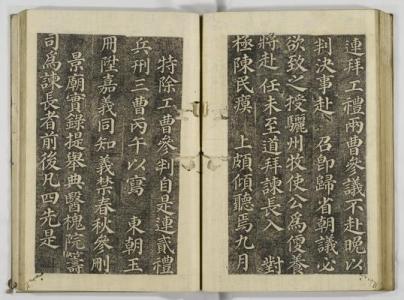 連拜工禮兩曹參議不赴晩以
判決事赴 召卽歸省朝議必
欲致之授驪州牧使公爲便養
將赴任未至道拜諫長入 對
極陳民瘼 上頗傾聽焉九月
特除工曹參判自是連貳禮
兵刑三曹丙午以寫 東朝玉
冊陞嘉義同知義禁春秋參刪
景廟實錄提擧典醫槐院籌
司爲諫長者前後凡四先是